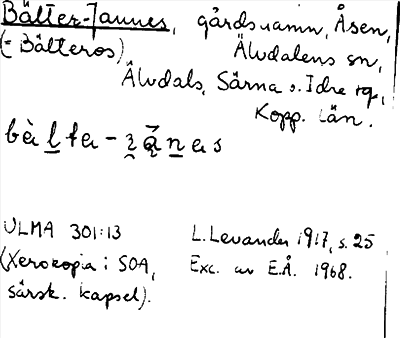 Bälter-Jannes, gårdsnamn, Åsen,
(= Bälteros) Älvdalens sn,
Älvdals, Särna o. Idre tg,
Kopp. län.
bèlta-
ULMA 301:13 L. Levander 1917, s. 25
(Xerokopia i SOA, Exc. av E.Å. 1968.
särsk. kapsel).